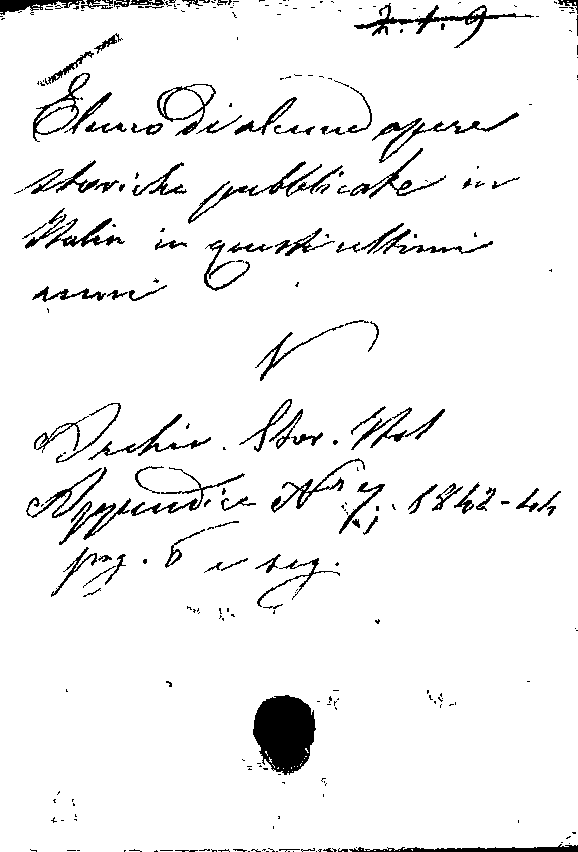 2.1.9
Elenco di alcune opere
storiche pubblicate in
Italia in questi ultimi
anni
V
Archiv. Stor. Ital
Appendice Nº 7; 1842-44
pag. 6 e seg.